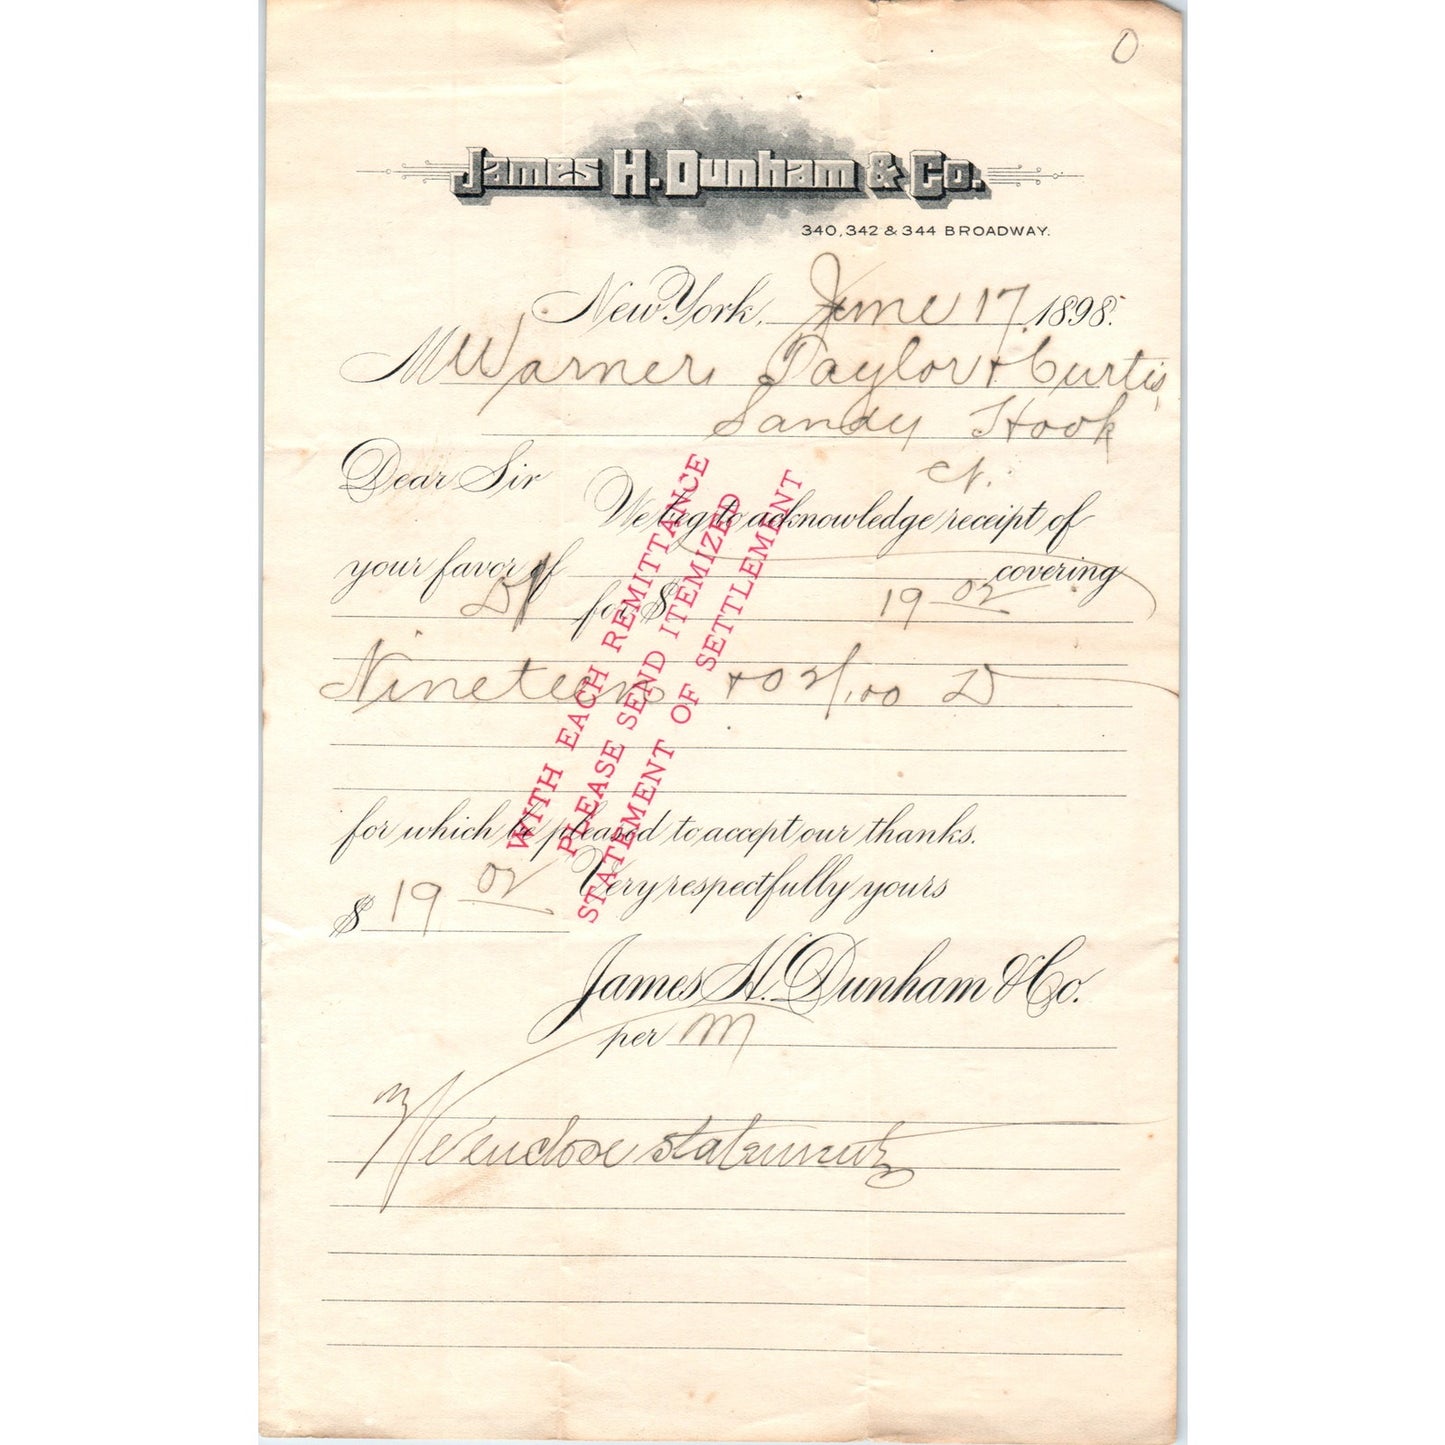 O
James H. Dunham & Co.
340, 342 & 344 BROADWAY.
New York, June 17 1898.
M Warner, Taylor & Curtis,
Sandy Hook
Ct.
Dear Sir
We beg to acknowledge receipt of
your favor of covering
for $ 19 02
Nineteen & 02/100 D
for which be pleased to accept our thanks.
$ 19 02 Very respectfully yours
James H. Dunham & Co.
per M
We enclose statement
WITH EACH REMITTANCE
PLEASE SEND ITEMIZED
STATEMENT OF SETTLEMENT